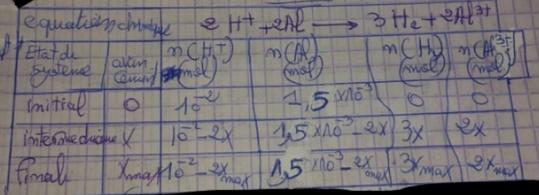 equation chimique 2 H+ + 2Al → 3 H2 + 2Al3+
Etat du système avancement n(H+) (mol) n(Al) (mol) n(H2) (mol) n(Al3+) (mol)
initial 0 10-2 1,5 x10-3 0 0
intermediaire x 10-2 - 2x 1,5 x10-3 - 2x 3x 2x
final xmax 10-2 - 2xmax 1,5 x10-3 - 2xmax 3xmax 2xmax